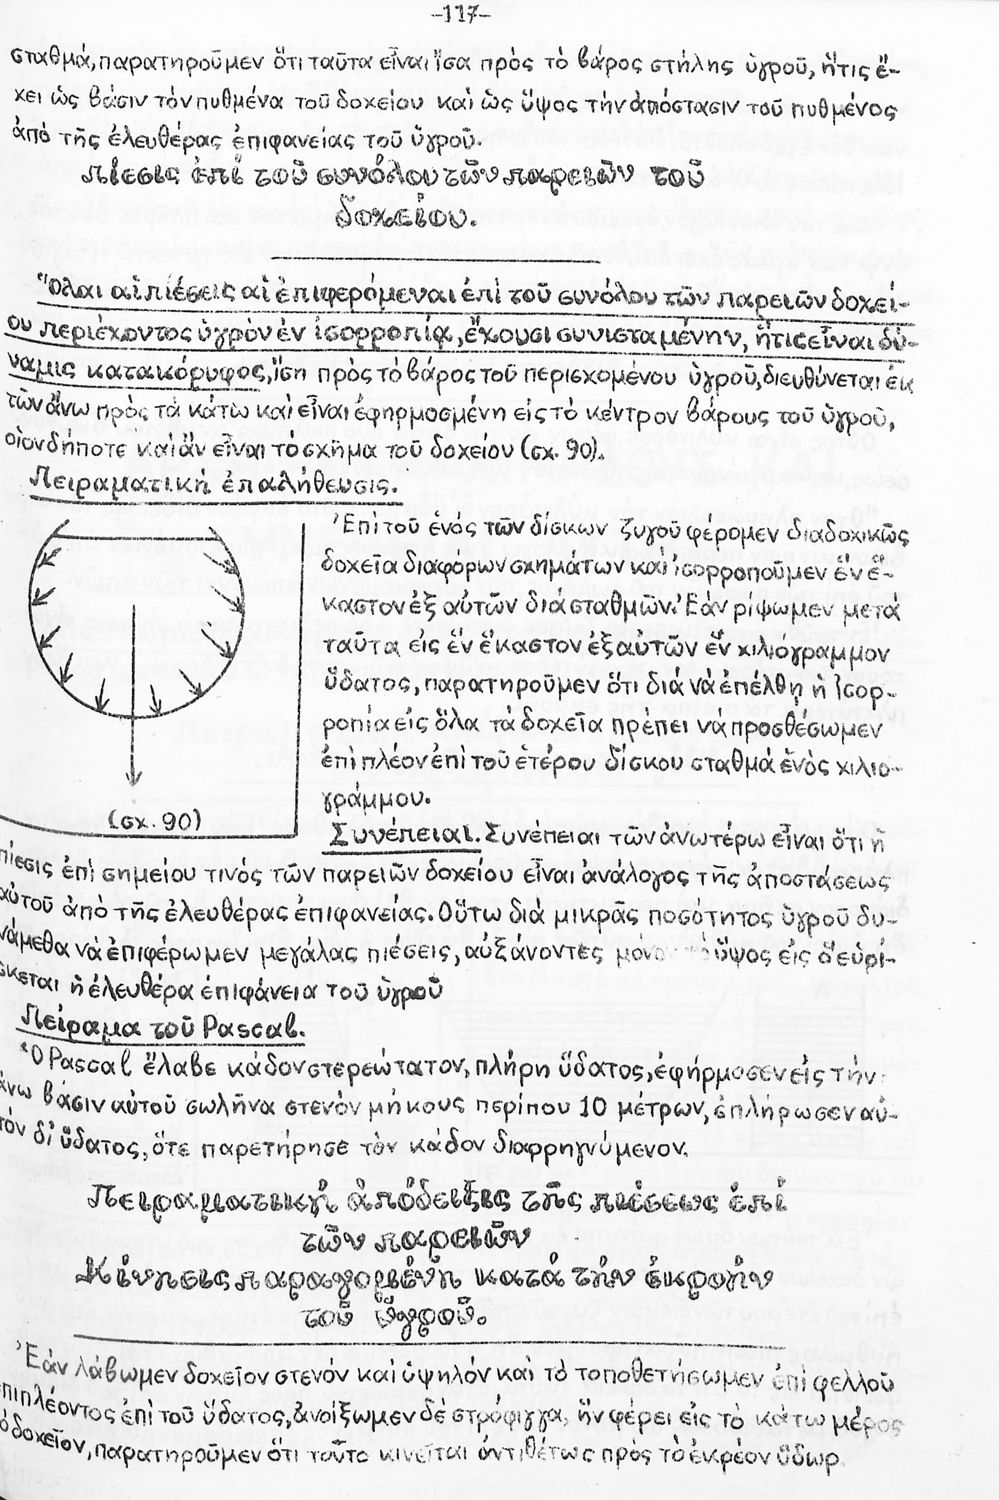 -117-
σταθμά, παρατηροῦμεν ὅτι ταῦτα εἶναι ἴσα πρὸς τὸ βάρος στήλης ὑγροῦ, ἥτις ἔ-
χει ὡς βάσιν τὸν πυθμένα τοῦ δοχείου καὶ ὡς ὕψος τὴν ἀπόστασιν τοῦ πυθμένος
ἀπὸ τῆς ἐλευθέρας ἐπιφανείας τοῦ ὑγροῦ.
Πίεσις ἐπὶ τοῦ συνόλου τῶν παρειῶν τοῦ
δοχείου.
Ὅλαι αἱ πιέσεις αἱ ἐπιφερόμεναι ἐπὶ τοῦ συνόλου τῶν παρειῶν δοχεί-
ου περιέχοντος ὑγρὸν ἐν ἰσορροπίᾳ, ἔχουσι συνισταμένην, ἥτις εἶναι δύ-
ναμις κατακόρυφος, ἴση πρὸς τὸ βάρος τοῦ περιεχομένου ὑγροῦ, διευθύνεται ἐκ
τῶν ἄνω πρὸς τὰ κάτω καὶ εἶναι ἐφηρμοσμένη εἰς τὸ κέντρον βάρους τοῦ ὑγροῦ,
οἱονδήποτε καὶ ἂν εἶναι τὸ σχῆμα τοῦ δοχείου (σχ. 90).
Πειραματικὴ ἐπαλήθευσις.
Ἐπὶ τοῦ ἑνὸς τῶν δίσκων ζυγοῦ φέρομεν διαδοχικῶς
δοχεῖα διαφόρων σχημάτων καὶ ἰσορροποῦμεν ἓν ἕ-
καστον ἐξ αὐτῶν διὰ σταθμῶν. Ἐὰν ρίψωμεν μετὰ
ταῦτα εἰς ἓν ἕκαστον ἐξ αὐτῶν ἓν χιλιόγραμμον
ὕδατος, παρατηροῦμεν ὅτι διὰ νὰ ἐπέλθῃ ἡ ἰσορ-
ροπία εἰς ὅλα τὰ δοχεῖα πρέπει νὰ προσθέσωμεν
ἐπὶ πλέον ἐπὶ τοῦ ἑτέρου δίσκου σταθμὰ ἑνὸς χιλιο-
γράμμου.
(σχ. 90)
Συνέπειαι. Συνέπειαι τῶν ἀνωτέρω εἶναι ὅτι ἡ
πίεσις ἐπὶ σημείου τινὸς τῶν παρειῶν δοχείου εἶναι ἀνάλογος τῆς ἀποστάσεως
αὐτοῦ ἀπὸ τῆς ἐλευθέρας ἐπιφανείας. Οὕτω διὰ μικρᾶς ποσότητος ὑγροῦ δυ-
νάμεθα νὰ ἐπιφέρωμεν μεγάλας πιέσεις, αὐξάνοντες μόνον τὸ ὕψος εἰς ὃ εὑρί-
σκεται ἡ ἐλευθέρα ἐπιφάνεια τοῦ ὑγροῦ
Πείραμα τοῦ Pascal.
Ὁ Pascal ἔλαβε κάδον στερεώτατον, πλήρη ὕδατος, ἐφήρμοσεν εἰς τὴν
ἄνω βάσιν αὐτοῦ σωλῆνα στενὸν μήκους περίπου 10 μέτρων, ἐπλήρωσεν αὐ-
τὸν δι' ὕδατος, ὅτε παρετήρησε τὸν κάδον διαρρηγνύμενον.
Πειραματικὴ ἀπόδειξις τῆς πιέσεως ἐπὶ
τῶν παρειῶν
Κίνησις παραγομένη κατὰ τὴν ἐκροὴν
τοῦ ὑγροῦ.
Ἐὰν λάβωμεν δοχεῖον στενὸν καὶ ὑψηλὸν καὶ τὸ τοποθετήσωμεν ἐπὶ φελλοῦ
ἐπιπλέοντος ἐπὶ τοῦ ὕδατος, ἀνοίξωμεν δὲ στρόφιγγα, ἣν φέρει εἰς τὸ κάτω μέρος
τὸ δοχεῖον, παρατηροῦμεν ὅτι τοῦτο κινεῖται ἀντιθέτως πρὸς τὸ ἐκρέον ὕδωρ